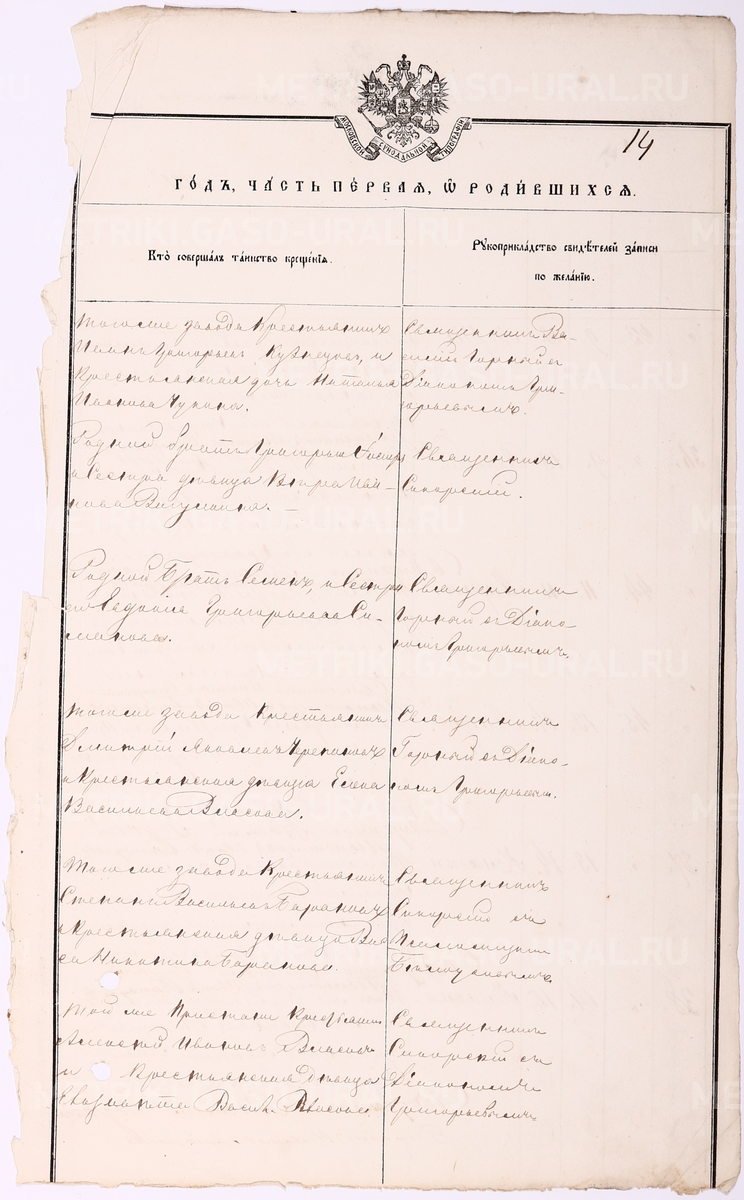 МОСКОВСКОЙ СѴНОДАЛЬНОЙ ТИПОГРАФІИ
14
ГОДЪ, ЧАСТЬ ПЕРВАЯ, Ѡ РОДИВШИХСЯ.
Кто совершалъ таинство крещенія.
Рукоприкладство свидѣтелей записи
по желанію.
тогоже завода Крестьянинъ
Иванъ Григорьевъ Кузнецовъ, и
Крестьянская дочь Наталья
Иванова
Священникъ Ва-
силій Горный съ
Діакономъ Гри-
горьевымъ.
Родной братъ Григорій
и Сестра дѣвица Вѣра Ива-
нова
Священникъ
Сикорскій.
Родной Братъ Семенъ, и Сестра
его Евдокія Григорьева Си-
Священникъ
Горный съ Діако-
номъ Григорьевымъ.
тогоже завода Крестьянинъ
Дмитрій Яковлевъ
и Крестьянская дѣвица Елена
Васильева Власова.
Священникъ
Горный съ Діако-
номъ Григорьевымъ.
тогоже завода Крестьянинъ
Степанъ Васильевъ Барановъ
и Крестьянская дѣвица
Никитина Баранова.
Священникъ
Сикорскій съ
Псаломщикомъ
той же Пристани Крестьянинъ
Алексѣй Ивановъ Власовъ
и Крестьянская дѣвица
Васил. Власова
Священникъ
Сикорскій съ
Діакономъ
Григорьевымъ
METRIKI.GASO-URAL.RU